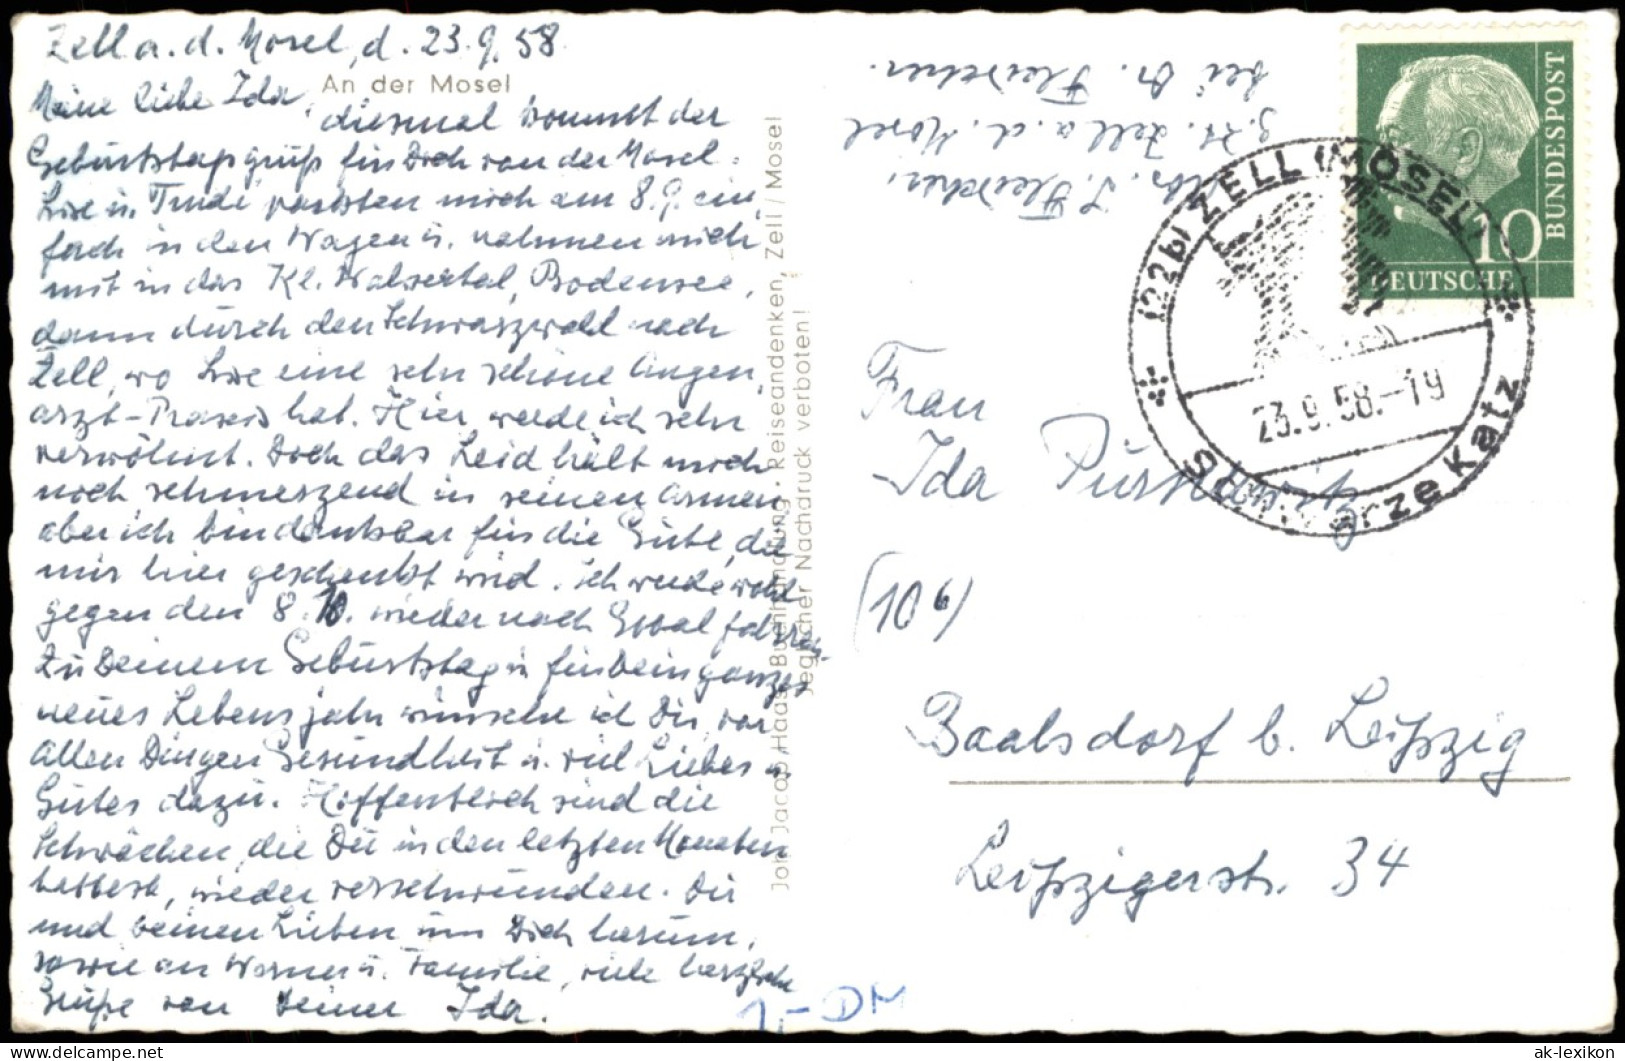 Zell a. d. Mosel, d. 23.9.58
An der Mosel
Meine liebe Ida,
diesmal kommt der
Geburtstagsgruß für Dich von der Mosel.
Lise u. Trude packten mich am 8.9. ein-
fach in den Wagen u. nahmen mich
mit in das Kl. Walsertal, Bodensee,
dann durch den Schwarzwald nach
Zell, wo Lise eine sehr schöne Augen-
arzt-Praxis hat. Hier werde ich sehr
verwöhnt. Doch das Leid hält mich
noch schmerzend in seinen Armen,
aber ich bin dankbar für die Güte, die
mir hier geschenkt wird. Ich werde wohl
gegen den 8.10. wieder nach fahren.
Zu Deinem Geburtstag u. für Dein ganzes
neues Lebensjahr wünsche ich Dir vor
allen Dingen Gesundheit u. viel Liebes u.
Gutes dazu. Hoffentlich sind die
Schwächen, die Du in den letzten Monaten
hattest, wieder verschwunden. Dir
und Deinen Lieben um Dich herum,
sowie an Werner u. Familie, viele herzliche
Grüße von Deiner Ida.
Joh. Jacob Haas Buchhandlung · Reiseandenken, Zell / Mosel
Jeglicher Nachdruck verboten!
Abs. I. Fleischer,
z. Zt. Zell a. d. Mosel
bei Dr. Fleischer.
DEUTSCHE BUNDESPOST
10
(22b) ZELL (MOSEL)
23.9.58.-19
Schwarze Katz
Frau
Ida
(10b)
Baalsdorf b. Leipzig
Leipzigerstr. 34
1,- DM
ak-lexikon